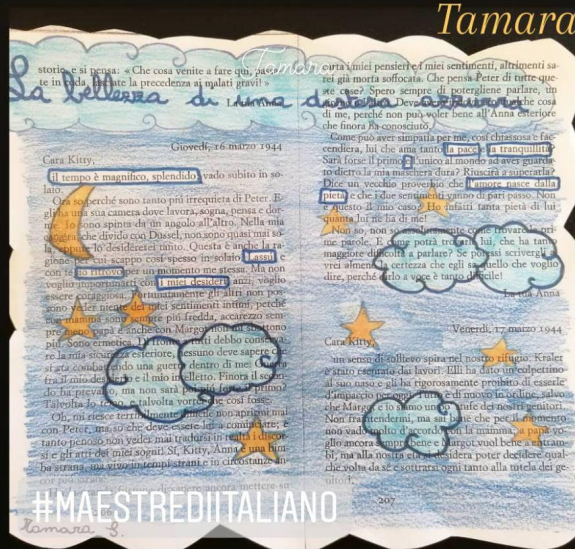 Tamara
Tamara
La bellezza di una
storia, e si pensa: « Che cosa venite a fare qui,
te in
la precedenza ai malati gravi! »
Giovedì, 16 marzo 1944
Cara Kitty,
il tempo è magnifico, splendido, vado subito in so-
laio.
perché sono tanto più irrequieta di Peter. E-
gli ha una sua camera dove lavora, sogna, pensa e dor-
spinta da un angolo all'altro. Nella mia
che divido con Dussel, non sono quasi mai so-
lo desidererei tanto. Questa è anche la ra-
cui scappo così spesso in solaio. Lassù e
con te io ritrovo per un momento me stessa. Ma non
voglio importunarti con i miei desideri, anzi, voglio
essere coraggiosa.
sentimenti intimi, perché
mamma sono sempre più fredda, accarezzo sem-
papà e anche con Margot
Sono ermetica.
re la mia sicurezza esteriore, nessuno deve sapere
una guerra dentro di me!
e il mio intelletto. Finora il secon-
ma non sarà
Talvolta lo e talvolta vorrei che così fosse.
Oh, mi riesce terribilmente
con Peter, ma so che deve essere lui a cominciare; è
tanto penoso non veder mai tradursi in realtà i discor-
si e gli atti dei miei sogni! Sì, Kitty, Anna è
ba strana, ma vivo in tempi strani e in circostanze
carta i miei pensieri e i miei sentimenti, altrimenti sa-
rei già morta soffocata. Che pensa Peter di tutte que-
ste cose? Spero sempre di potergliene parlare, un
giorno. Deve
di me, perché non può voler bene all'Anna esteriore
che finora ha conosciuto.
Come può aver simpatia per me, così chiassosa e fac-
cendiera, lui che ama tanto la pace e la tranquillità?
Sarà forse il primo e unico al mondo ad aver guarda-
to dietro la mia maschera dura? Riuscirà a superarla?
Dice un vecchio proverbio che l'amore nasce dalla
pietà e che i due sentimenti vanno di pari passo. Non
è questo il mio caso? Ho infatti tanta pietà di lui
quanta lui ne ha di me!
non so, non so come trovare le pri-
me parole. E come potrà lui, che ha tanta
maggiore difficoltà a parlare? Se potessi scrivergli,
vrei almeno la certezza che egli sa quello che voglio
dire, perché dirlo a voce è tanto difficile!
La tua Anna
Venerdì, 17 marzo 1944
Cara Kitty,
un senso di sollievo spira nel nostro rifugio. Kraler
è stato esentato dai lavori. Elli ha dato un colpettino
al suo naso e gli ha rigorosamente proibito di esserle
d'impaccio oggi. di nuovo in ordine, salvo
che Margot e io siamo un stufe dei nostri genitori.
Non fraintendermi, ma sai bene che per il momento
non vado molto d'accordo la mamma; a papà vo-
glio ancora sempre bene e Margot vuol bene a entram-
bi, ma alla nostra età si desidera poter decidere qual-
che volta da sé e sottrarsi ogni tanto alla tutela dei ge-
nitori.
207
#MAESTREDIITALIANO
Tamara S.